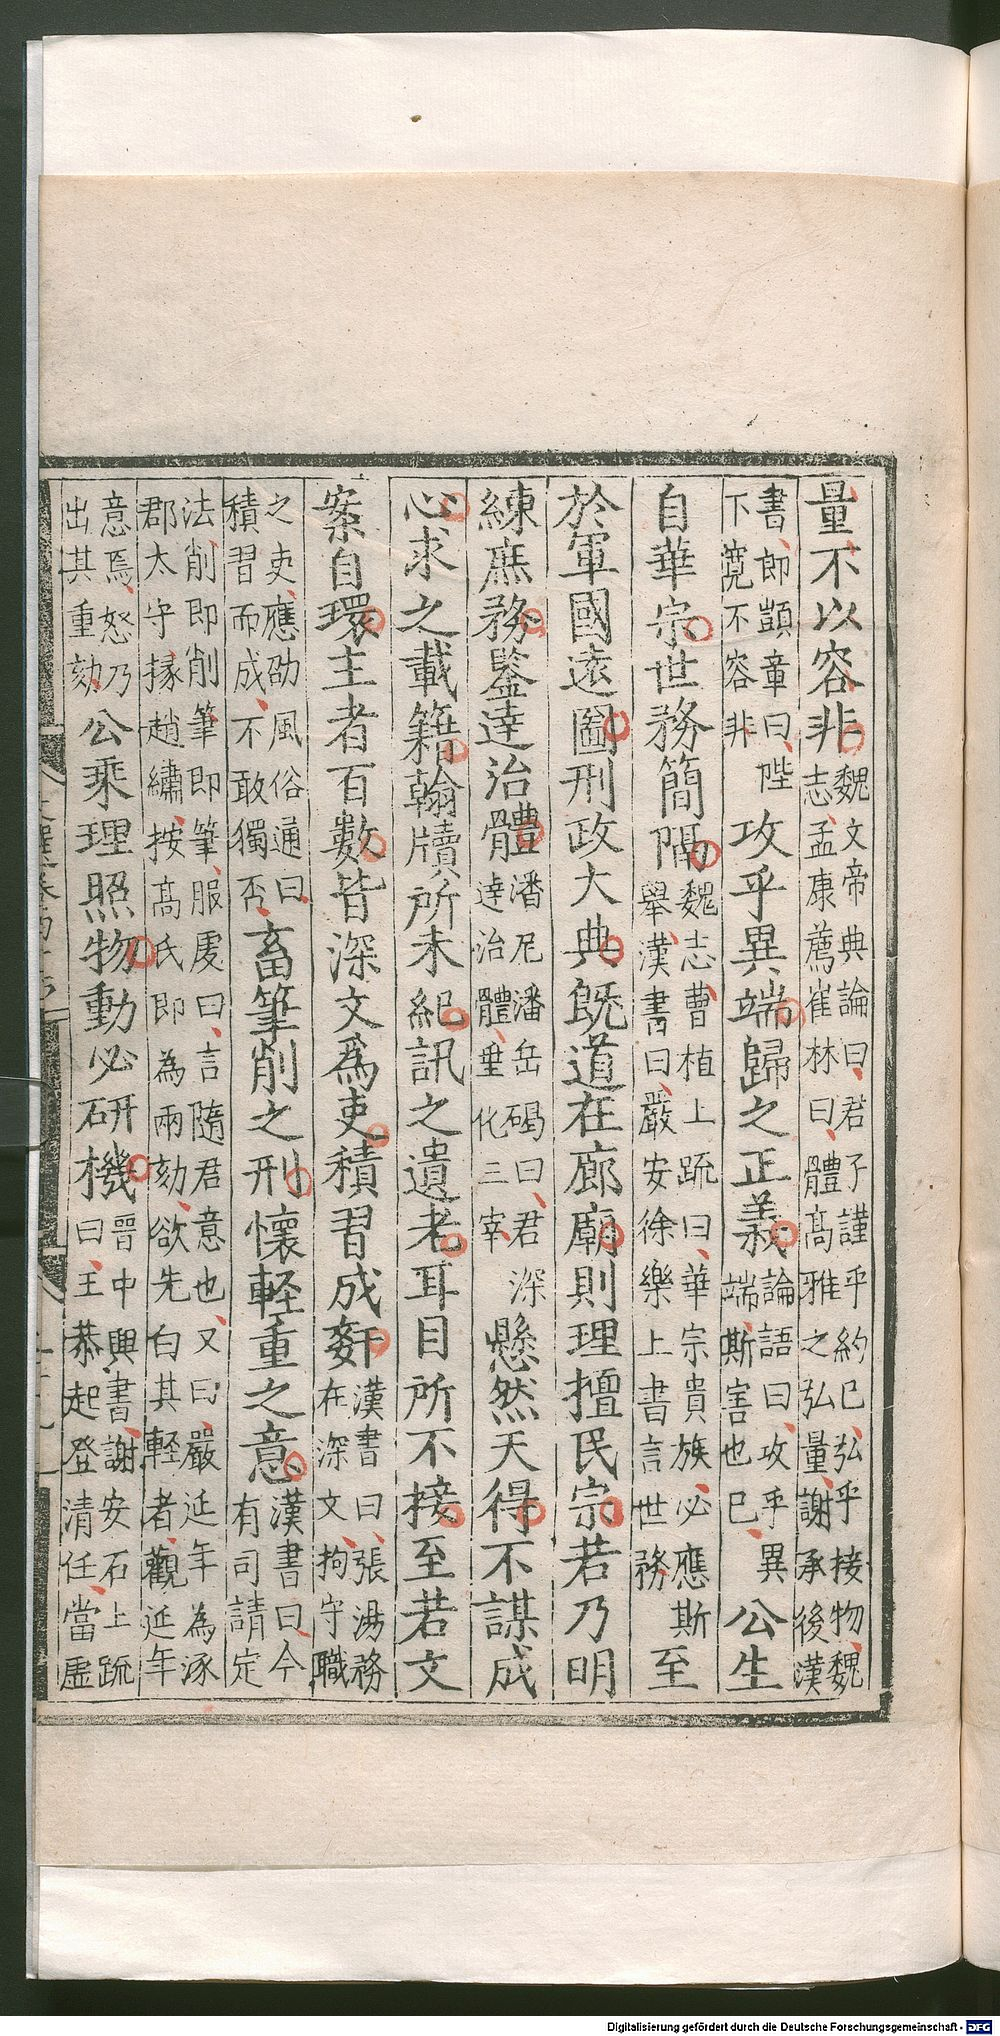 量不以容非魏文帝典論曰君子謹乎約己弘乎接物魏
志孟康薦崔林曰體高雅之弘量謝承後漢
書郎顗章曰陛
下寛不容非攻乎異端歸之正義論語曰攻乎異
端斯害也已公生
自華宗世務簡隔魏志曹植上疏曰華宗貴族必應斯
舉漢書曰嚴安徐樂上書言世務至
於軍國遠圖刑政大典旣道在廊廟則理擅民宗若乃明
練庶務鑒達治體潘尼潘岳碣曰君深
達治體垂化三宰懸然天得不謀成
心求之載籍翰牘所未紀訊之遺老耳目所不接至若文
案自環主者百數皆深文爲吏積習成奸漢書曰張湯務
在深文拘守職
之吏應劭風俗通曰
積習而成不敢獨否畜筆削之刑懷輕重之意漢書曰今
有司請定
法削即削筆即筆服虔曰言隨君意也又曰嚴延年為涿
郡太守掾趙繡按高氏即為兩劾欲先白其輕者觀延年
意焉怒乃
出其重劾公乘理照物動必研機晉中興書謝安石上疏
曰王恭起登清任當虛
Digitalisierung gefördert durch die Deutsche Forschungsgemeinschaft - DFG